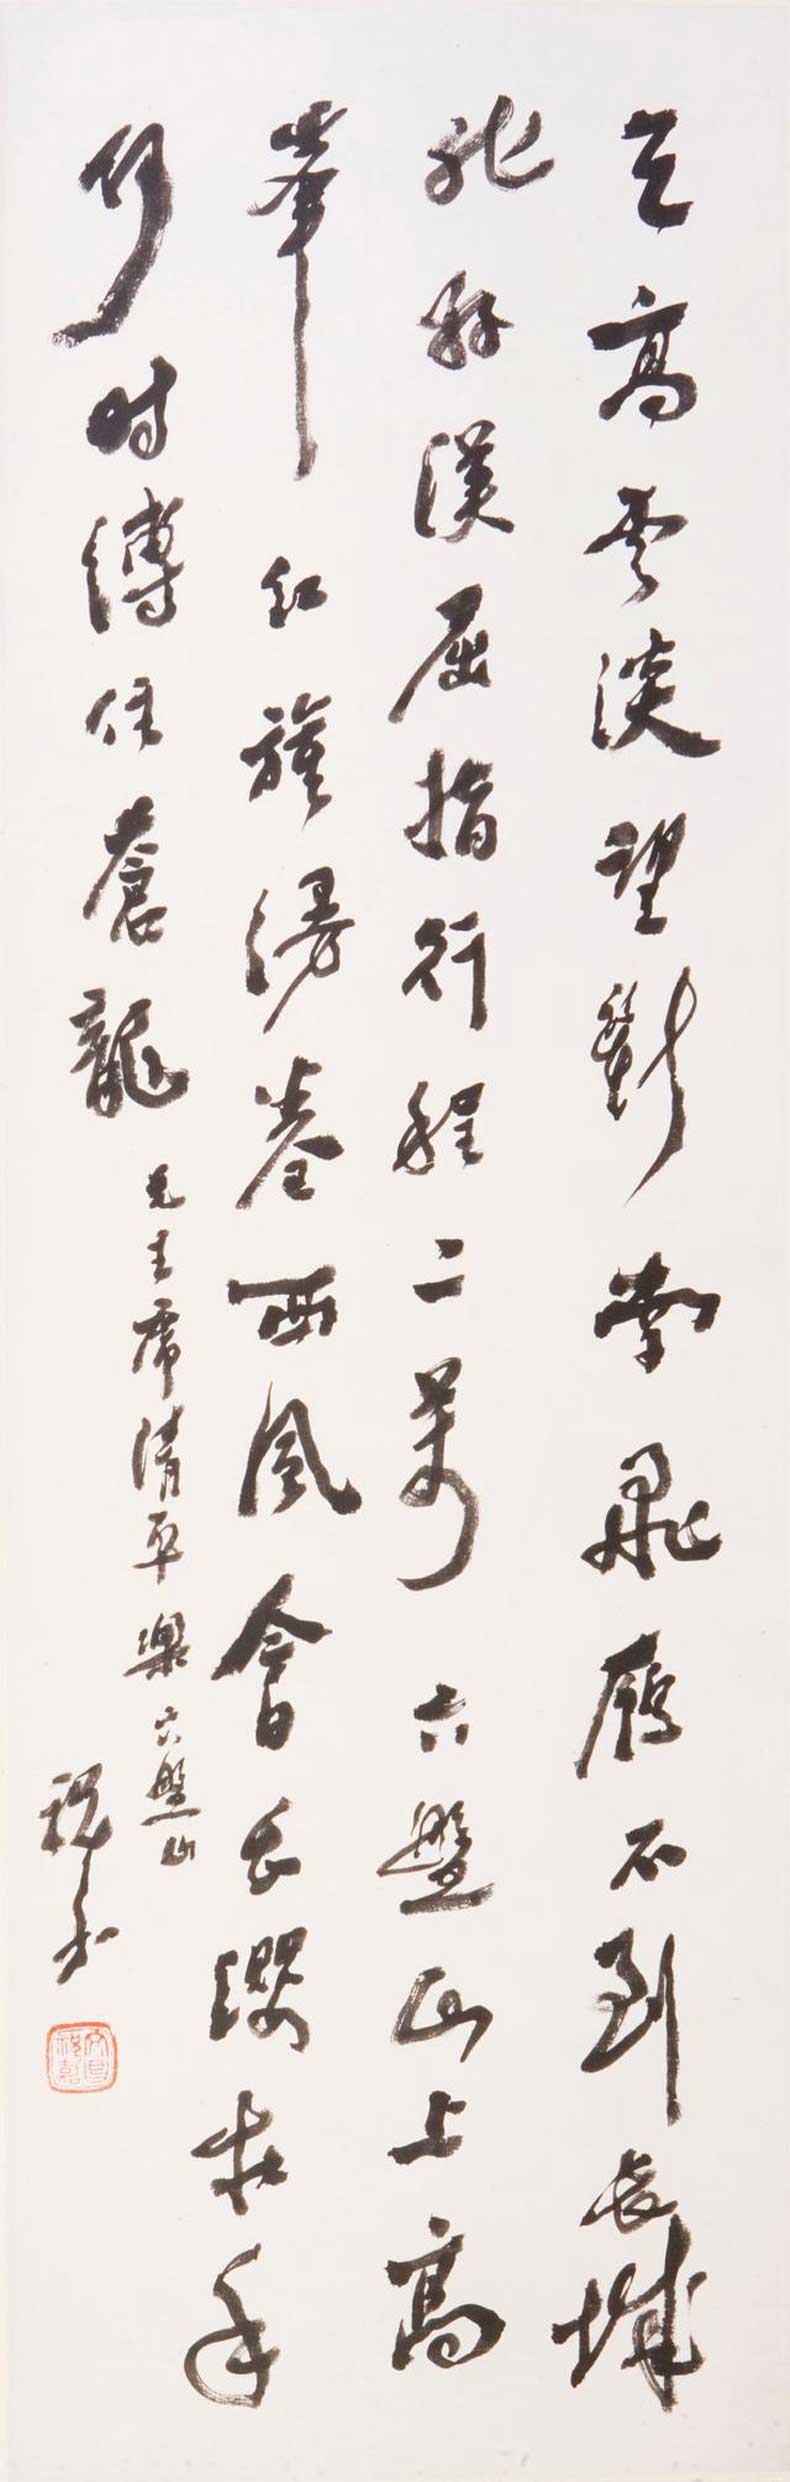 天高雲淡望斷南飛雁不到長城
非好漢屈指行程二萬六盤山上高
峯紅旗漫卷西風今日長纓在手
何時縛住蒼龍
毛主席清平樂六盤山
祝嘉